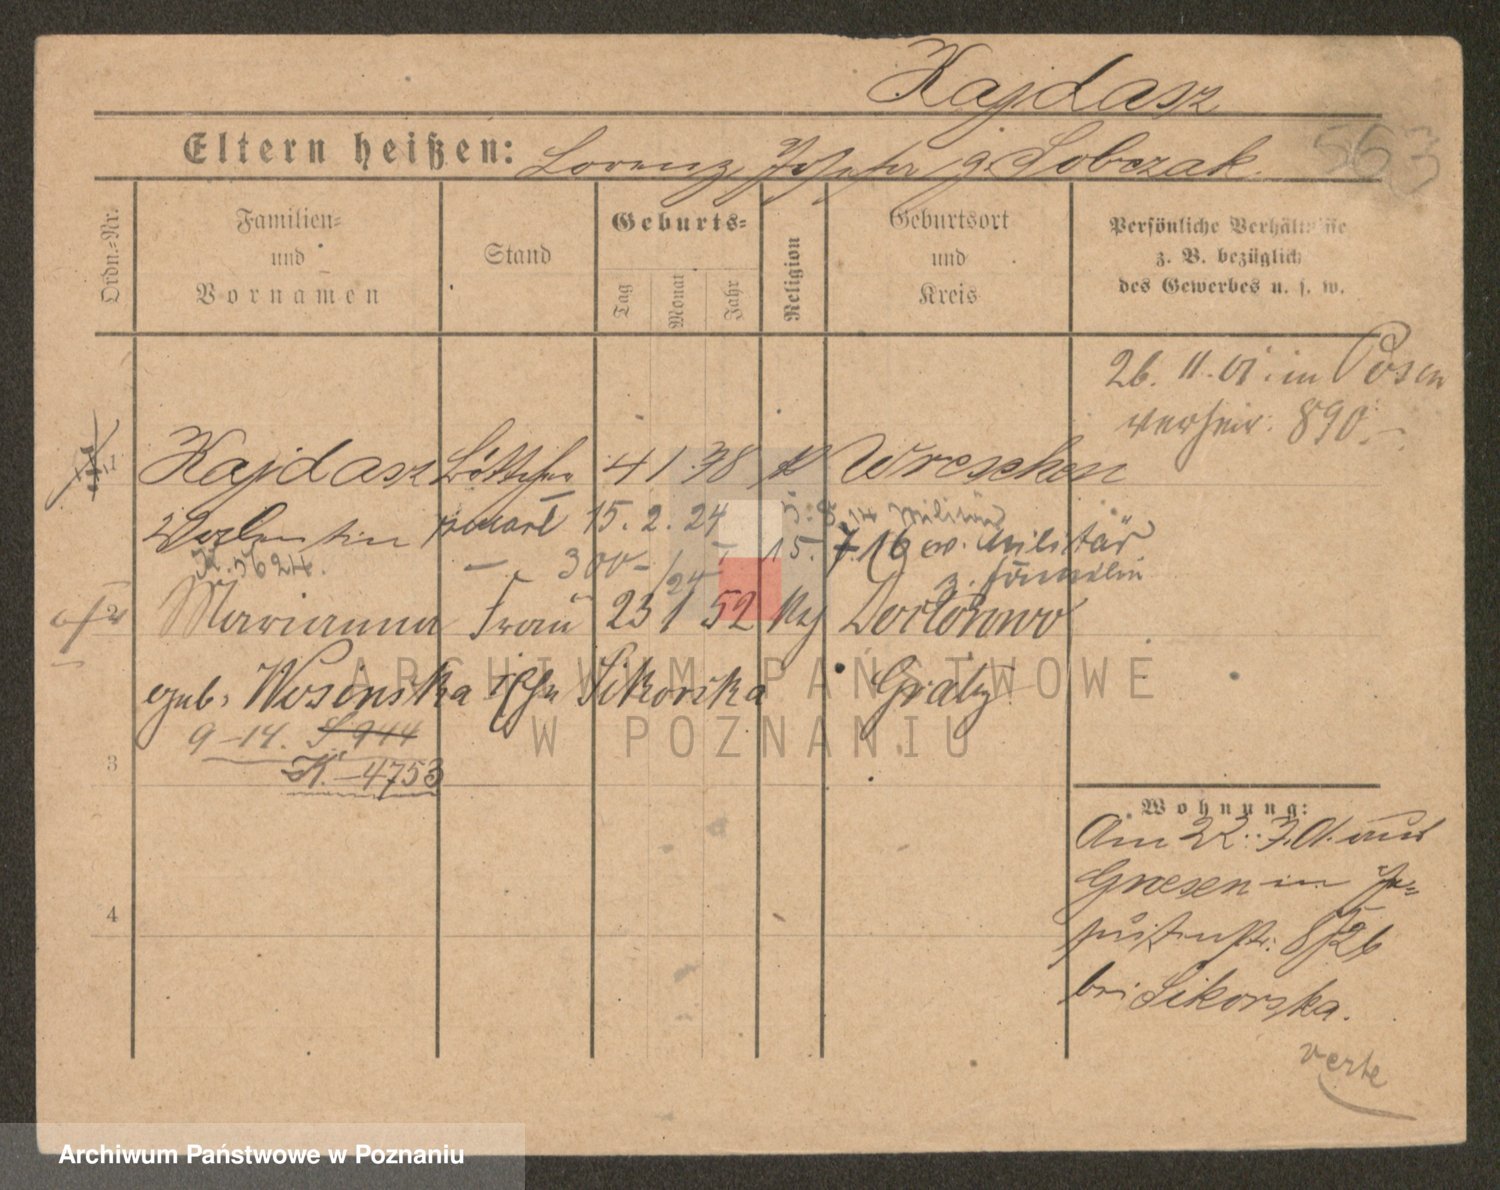 Kajdasz
563
Eltern heißen: Lorenz, Josefa g. Sobczak.
Ordn.=Nr.
Familien=
und
Vornamen
Stand
Geburts=
Tag
Monat
Jahr
Religion
Geburtsort
und
Kreis
Persönliche Verhältnisse
z. B. bezüglich
des Gewerbes u. s. w.
26. 11. 01. in Posen
verheir. 890.
1 Kajdasz Böttcher 4 1 78 k Wreschen
Valentin 15. 2. 24 5. 8. 14 Militär
K. 5624. 300 15. 7. 16 v. Militär
z. Familie
2 Marianna Frau 23 1 52 Dortowo
geb. Wosinska Sikorska Grätz
9-14. S 944
3 K. 4753
4
Wohnung:
Am 22. 3. 01. aus
Gnesen in Je=
suitenstr. 8/26
bei Sikorska.
verte
ARCHIWUM PAŃSTWOWE
W POZNANIU
Archiwum Państwowe w Poznaniu